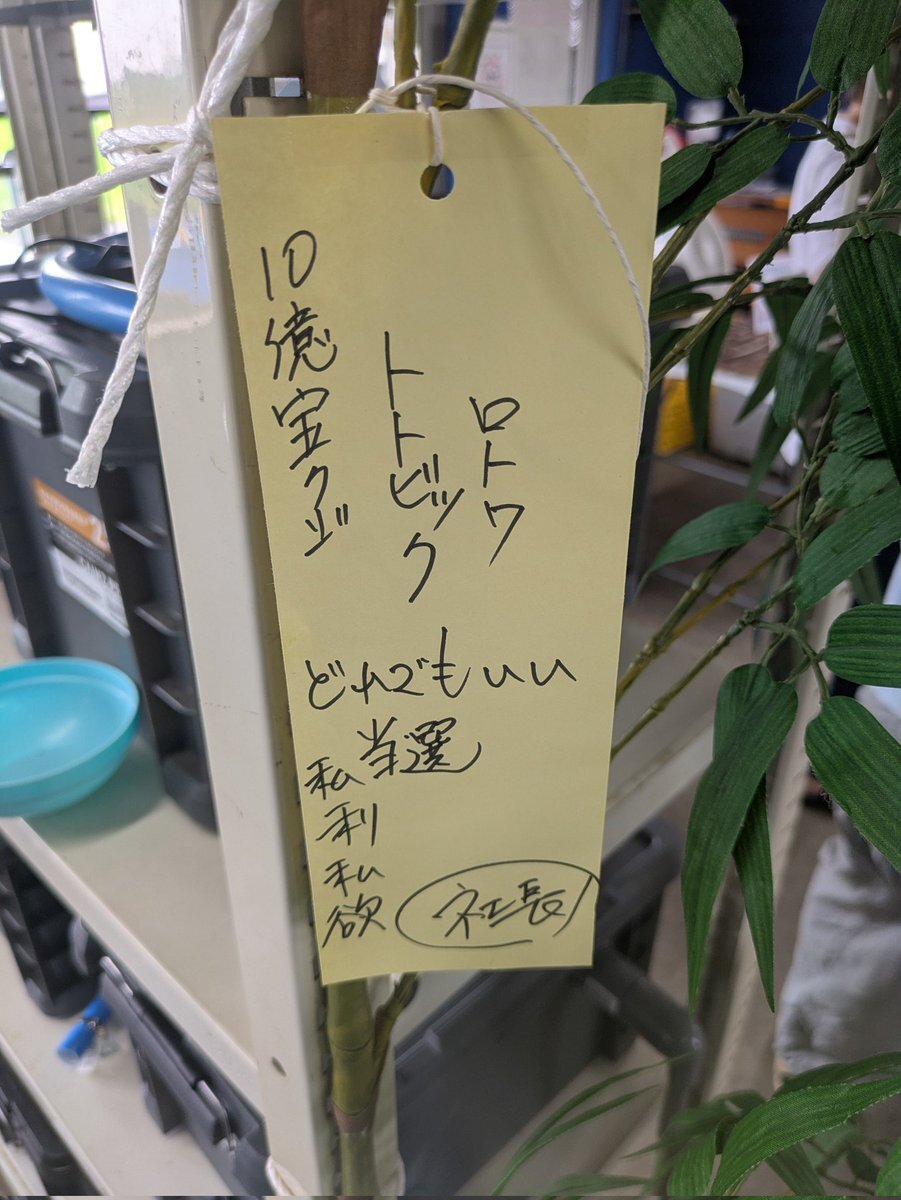 ロト7
トトビック
10億宝クジ
どれでもいい
当選
私利私欲
社長